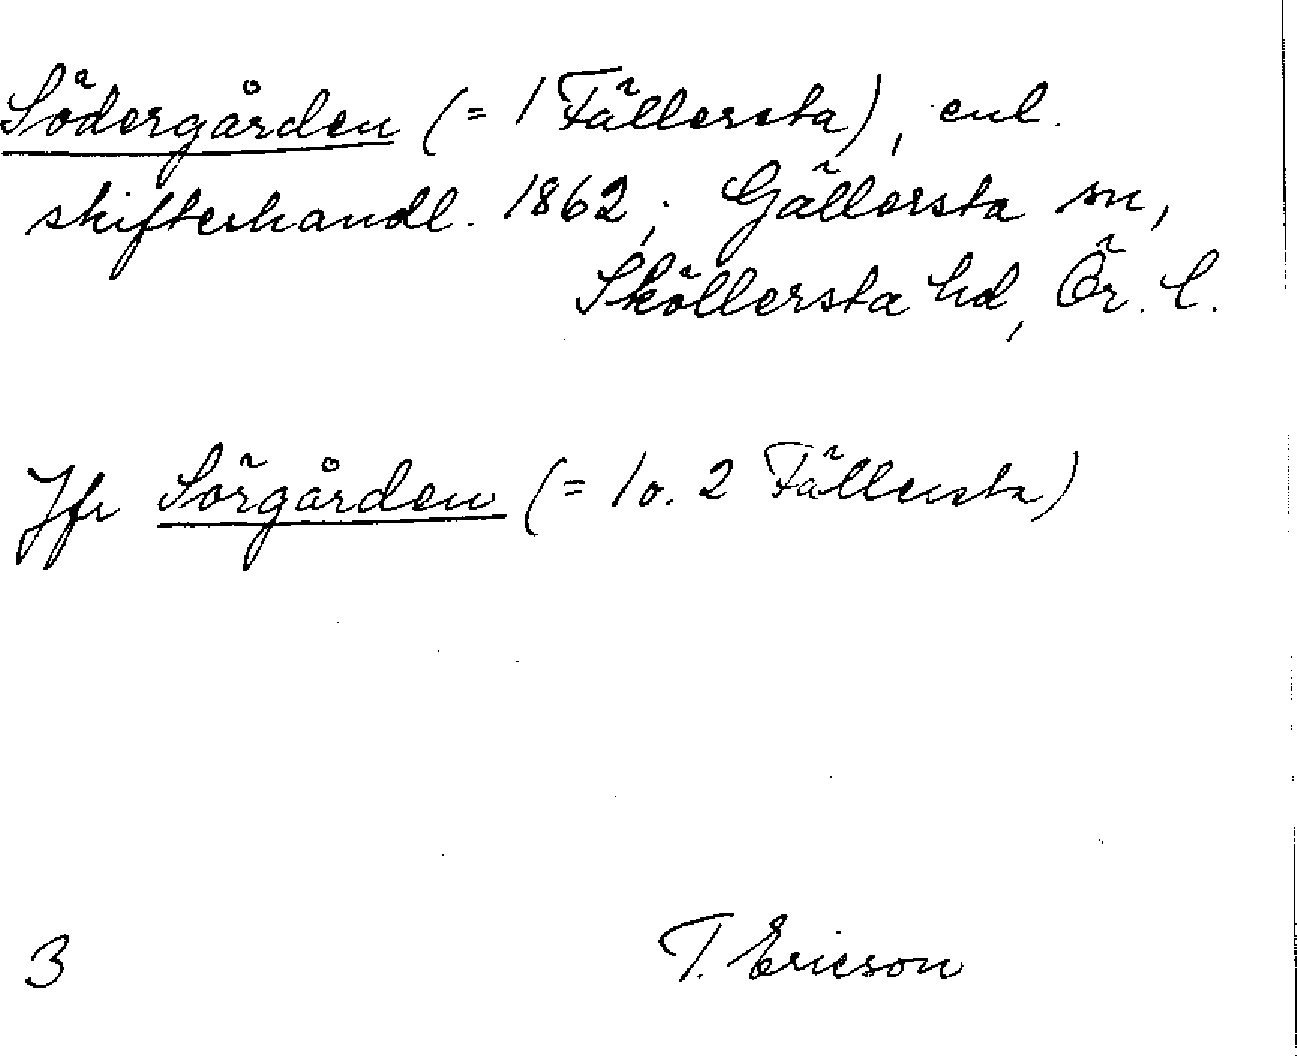 Södergården (= 1 Fällersta), enl.
skifteshandl. 1862; Gällersta sn,
Sköllersta hd, Ör. l.
Jfr Sörgården (= 1 o. 2 Fällersta)
3 T. Ericson